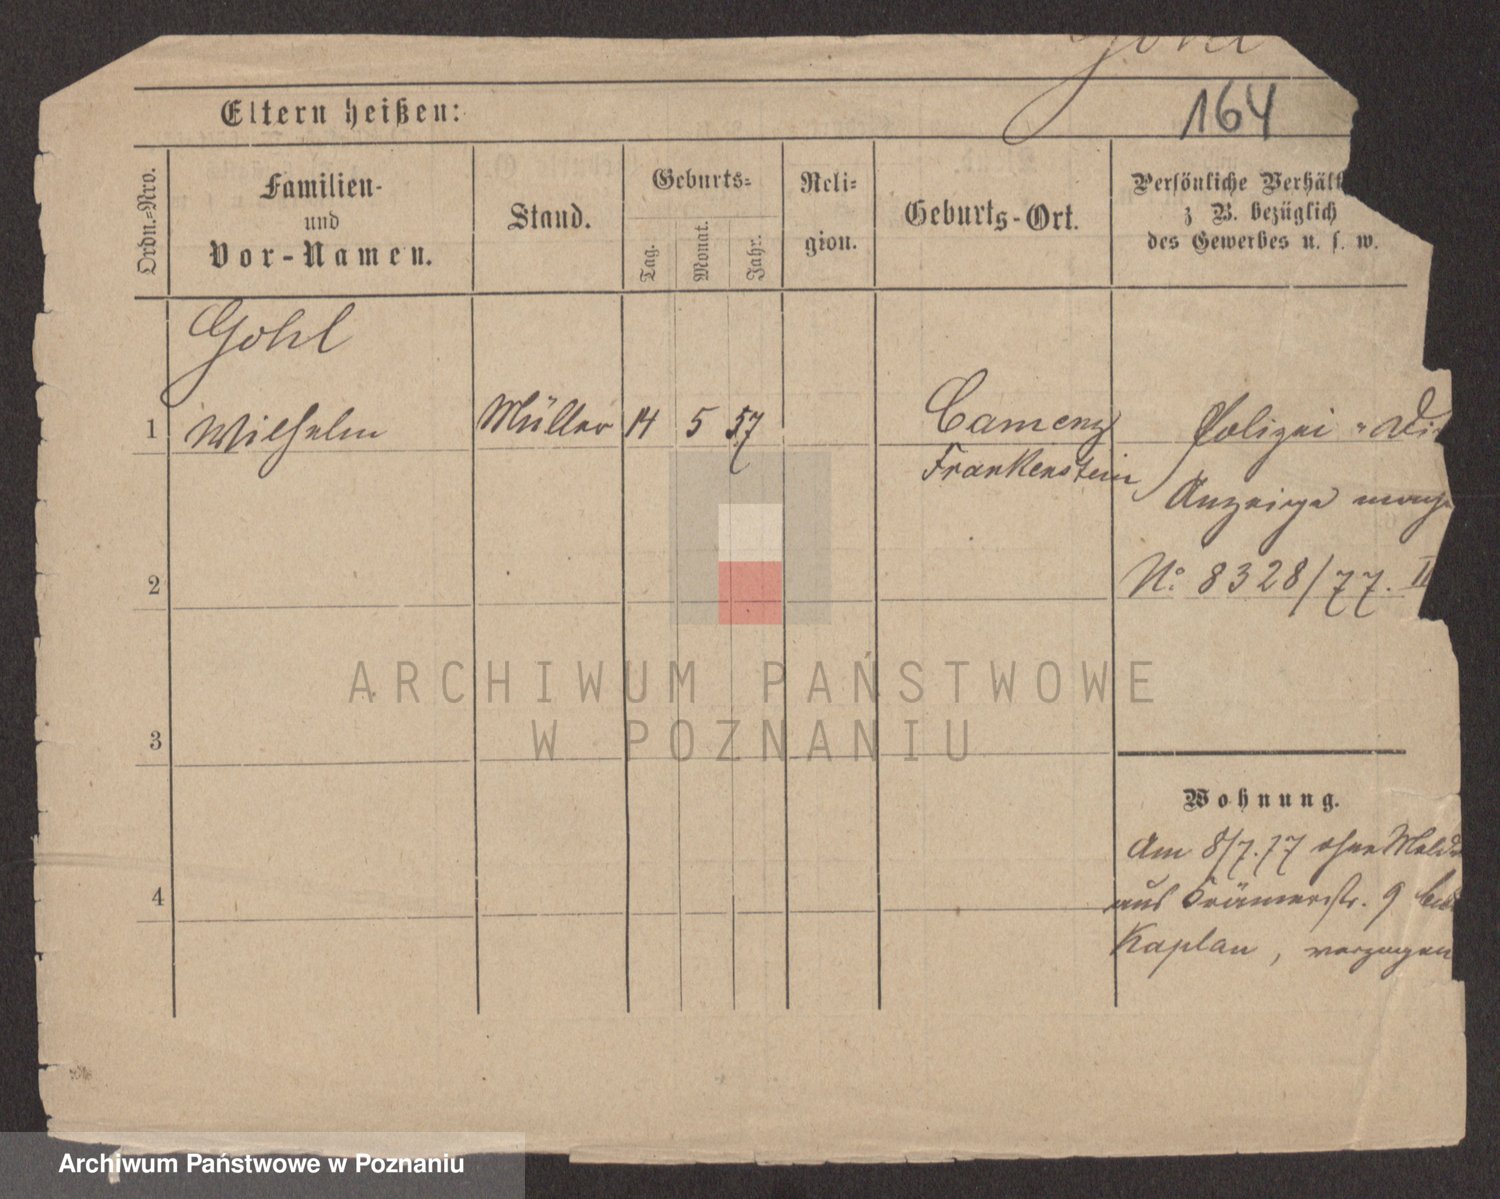 Gohl
164
Eltern heißen:
Ordn.=Nro.
Familien-
und
Vor-Namen.
Stand.
Geburts=
Tag.
Monat.
Jahr.
Reli=
gion.
Geburts-Ort.
Persönliche Verhält
z B. bezüglich
des Gewerbes u. s. w.
Gohl
1 Wilhelm Müller 14 5 57 Camenz Polizei - Di
Frankenstein
Anzeige
No 8328/77. II
2
3
4
Wohnung.
Am 8/7.77 ohne Meld
aus Krämerstr. 9 bei
Kaplan, verzogen
ARCHIWUM PAŃSTWOWE
W POZNANIU
Archiwum Państwowe w Poznaniu